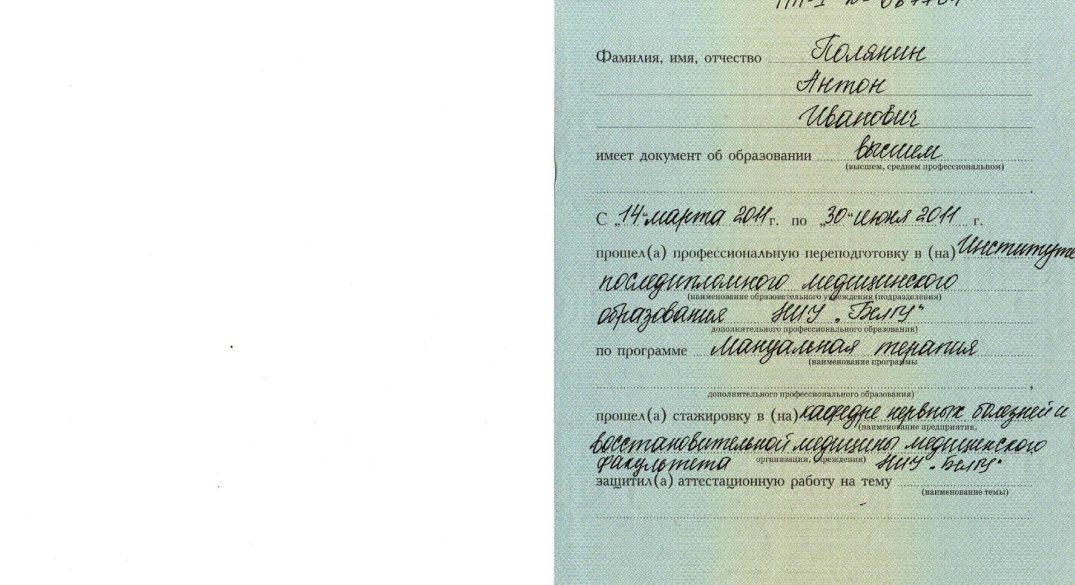 Фамилия, имя, отчество Полянин
Антон
Иванович
имеет документ об образовании высшем
(высшем, среднем профессиональном)
С „14“ марта 2011 г. по „30“ июня 2011 г.
прошел(а) профессиональную переподготовку в (на) Институте
последипломного медицинского
(наименование образовательного учреждения (подразделения)
образования НИУ „БелГУ“
дополнительного профессионального образования)
по программе Мануальная терапия
(наименование программы
дополнительного профессионального образования)
прошел(а) стажировку в (на) кафедре нервных болезней и
(наименование предприятия,
восстановительной медицины медицинского
организации, учреждения)
факультета НИУ „БелГУ“
защитил(а) аттестационную работу на тему
(наименование темы)